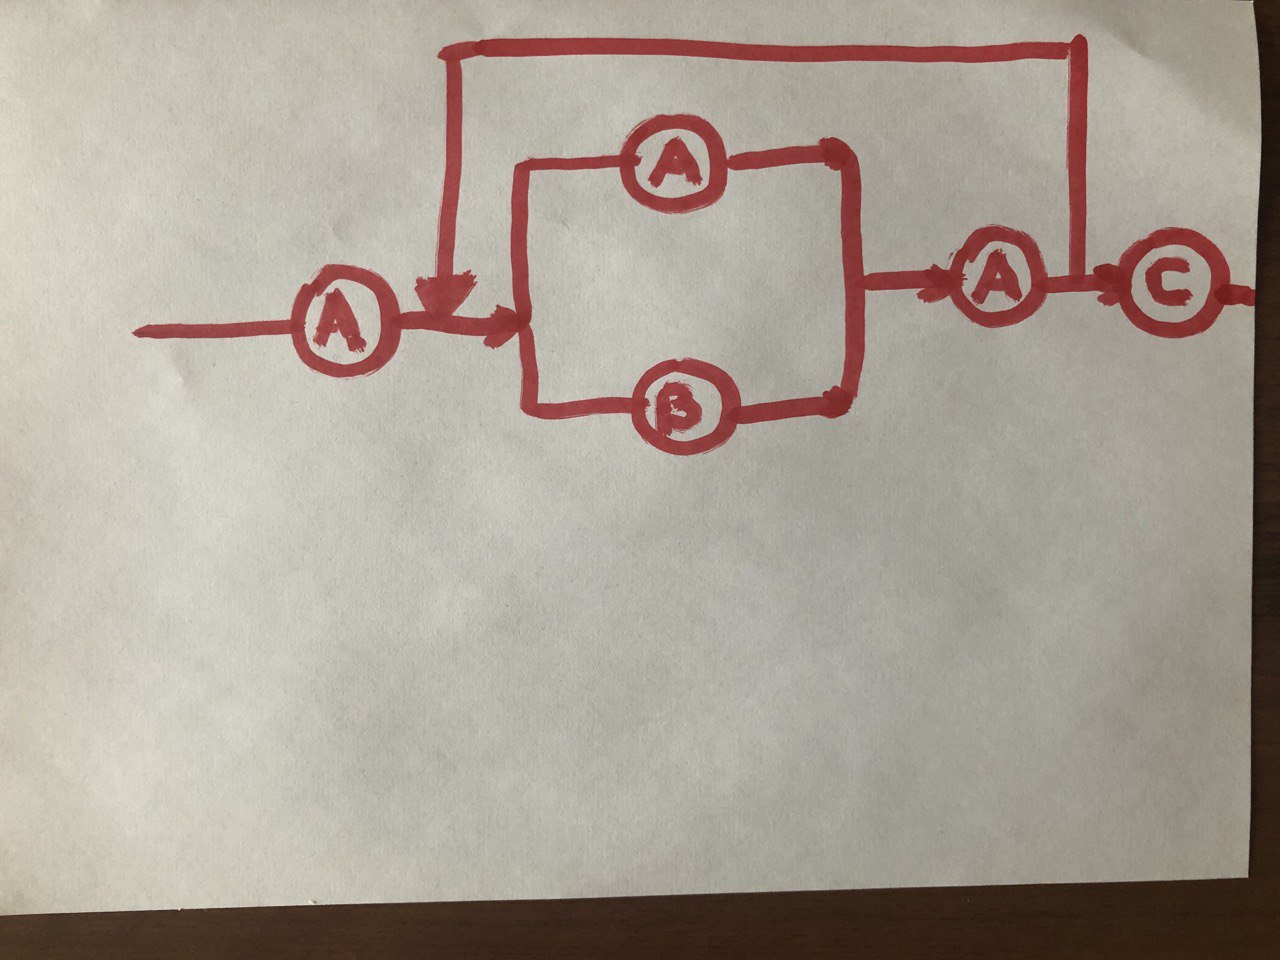 A
A
B
A
C